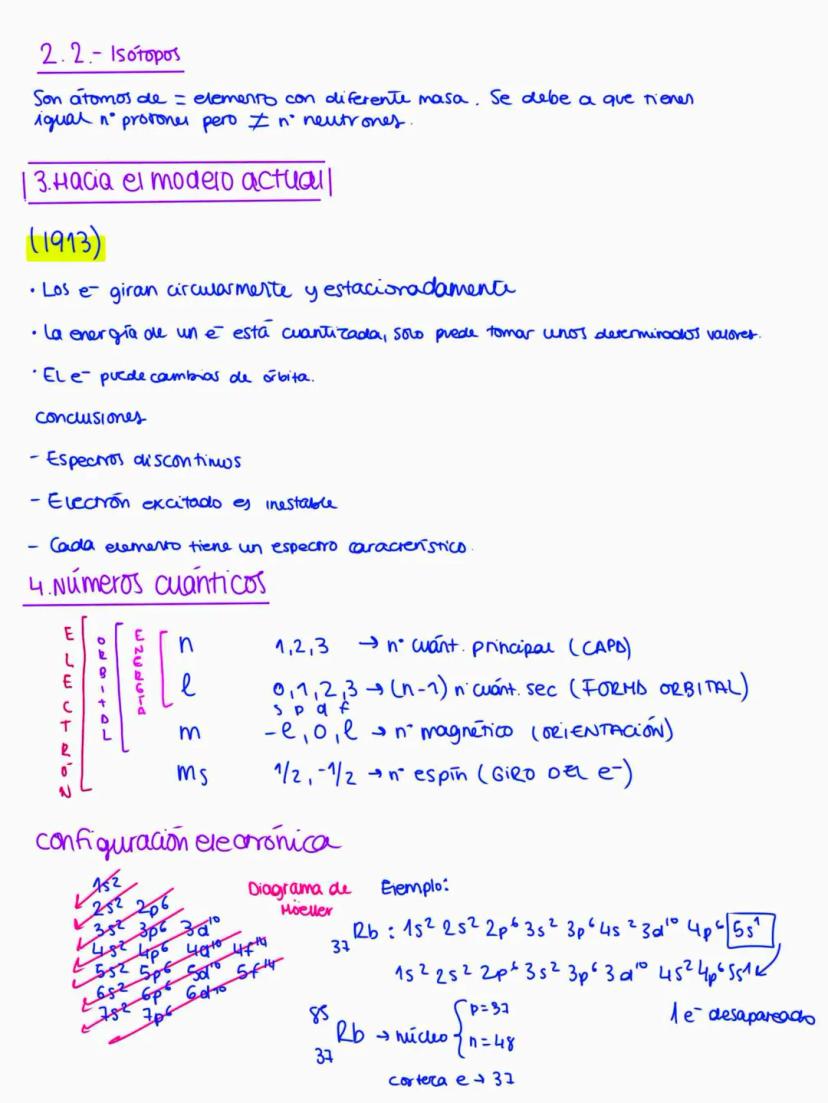 2.2.- Isótopos
Son átomos de = elemento con diferente masa. Se debe a que tienen
igual nº protones pero ≠ nº neutrones.
3.Hacia el modelo actual
(1913)
· Los e⁻ giran circularmente y estacionadamente
· La energía de un e⁻ está cuantizada, solo puede tomar unos determinados valores.
· El e⁻ puede cambias de órbita.
conclusiones
- Espectros discontinuos
- Electrón excitado es inestable
- Cada elemento tiene un espectro característico.
4.Números cuánticos
ELECTRÓN
ORBITAL
ENERGÍA
n 1,2,3 → nº cuánt. principal (CAPA)
l 0,1,2,3 → (n-1) nº cuánt. sec (FORMA ORBITAL)
s p d f
m -l,0,l → nº magnético (ORIENTACIÓN)
ms 1/2, -1/2 → nº espín (GIRO DEL e⁻)
Configuración electrónica
1s²
2s² 2p⁶
3s² 3p⁶ 3d¹⁰
4s² 4p⁶ 4d¹⁰ 4f¹⁴
5s² 5p⁶ 5d¹⁰ 5f¹⁴
6s² 6p⁶ 6d¹⁰
7s² 7p⁶
Diagrama de
Möeller
Ejemplo:
₃₇Rb : 1s² 2s² 2p⁶ 3s² 3p⁶ 4s² 3d¹⁰ 4p⁶ 5s¹
1s² 2s² 2p⁶ 3s² 3p⁶ 3d¹⁰ 4s² 4p⁶ 5s¹
1 e⁻ desapareado
85
37 Rb → núcleo { p=37
n=48
corteza e → 37